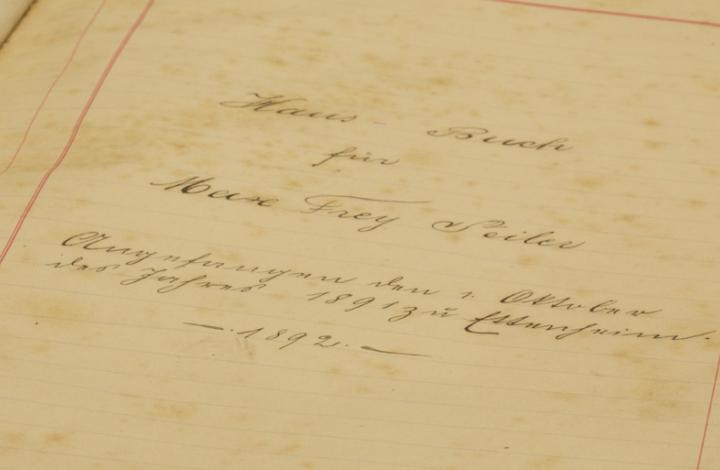 Haus- Buch
für
Max Frey Seiler
Angefangen den 1. Oktober
des Jahres 1891 zu Ettenheim.
—.1892.—